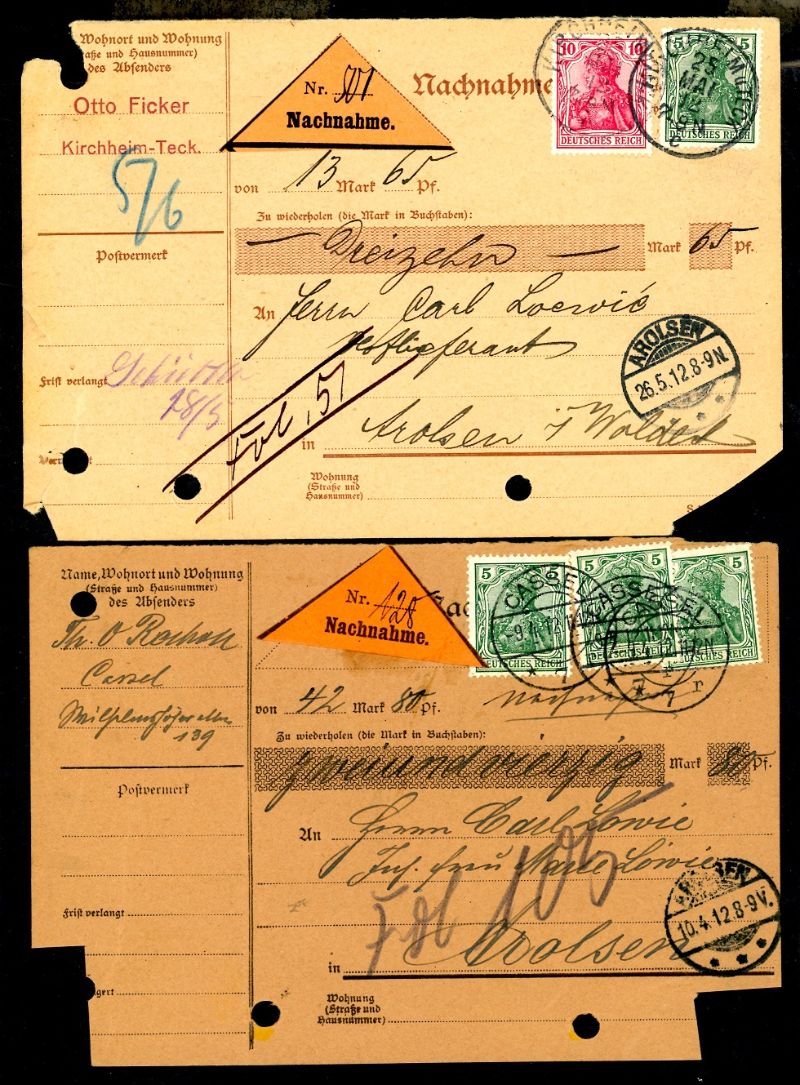 Wohnort und Wohnung
(Straße und Hausnummer)
des Absenders
Otto Ficker
Kirchheim-Teck.
5/6
Postvermerk
Frist verlangt
18/5
Nr. 801
Nachnahme.
Nachnahme
10 10
DEUTSCHES REICH
5 5
DEUTSCHES REICH
25
MAI
12
7-8N
c
von 13 Mark 65 Pf.
Zu wiederholen (die Mark in Buchstaben):
— Dreizehn — Mark 65 Pf.
An Herrn Carl Loewié
Hoflieferant
AROLSEN
26.5.12.8-9N.
Fol. 51
in Arolsen i/Waldek
Wohnung
(Straße und
Hausnummer)
Name, Wohnort und Wohnung
(Straße und Hausnummer)
des Absenders
Th. O
Cassel
139
Postvermerk
Frist verlangt
Nr. 120
Nachnahme.
5 5
DEUTSCHES REICH
5 5
DEUTSCHES REICH
5
DEUTSCHES REICH
CASSEL
* 7 r
von 42 Mark 80 Pf.
Zu wiederholen (die Mark in Buchstaben):
zweiundvierzig Mark 80 Pf.
An Herrn Carl Löwie
Inh. Frau Marie Löwie
Fol 105
AROLSEN
10.4.12.8-9V.
in Arolsen
Wohnung
(Straße und
Hausnummer)